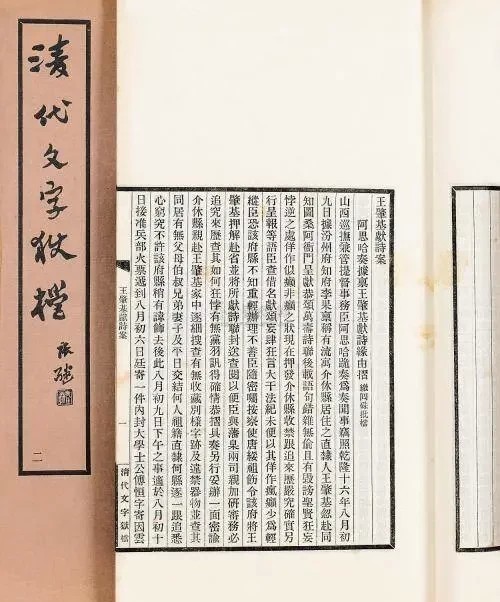 清代文字獄檔
張繼
二
王肇基獻詩案
阿思哈奏據稟王肇基獻詩緣由摺 繳回硃批檔
山西巡撫兼管提督事務臣阿思哈謹奏爲奏聞事竊照乾隆十六年八月初
九日據汾州府知府李果稟稱有流寓介休縣居住之直隸人王肇基忽赴同
知圖桑阿衙門呈獻恭頌萬壽詩聯後載語句錯雜無倫且有毀謗聖賢狂妄
悖逆之處佯作似癲非癲之狀現在押發介休縣收禁跟追來歷嚴究確實另
行呈報等語臣查借名獻頌妄肆狂言大干法紀未便以其佯作瘋癲少爲輕
縱臣恐該府縣不知重輕辦理不善臣隨密囑按察使唐綏祖飭令該府將王
肇基押解赴省並將所獻詩聯封送查閱以便臣與藩臬兩司親加研審務必
追究來歷查其如何狂悖有無黨羽訊得確情恭摺具奏另行妥辦一面密諭
介休縣親赴王肇基家中逐細搜查有無收藏別樣字跡及違禁器物並查其
同居有無父母伯叔兄弟妻子及平日交結何人祖籍直隸何縣逐一跟追悉
心窮究不許該府縣稍有諱飾去後此八月初九日下午之事適於八月初十
日接准兵部火票遞到八月初六日廷寄一件內封大學士公傅恒字寄因雲
王肇基獻詩案
一
清代文字獄檔